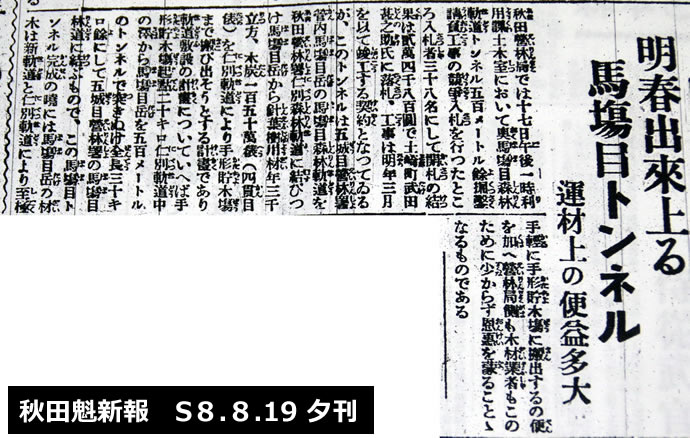 明春出來上る
馬塲目トンネル
運材上の便益多大
秋田營林局では十七日午後一時利
用課土木室において奧馬塲目森林
軌道トンネル五百メートル餘掘鑿
請負工事の競爭入札を行つたとこ
ろ入札者三十八名にして開札の結
果は貳萬四千八百圓で土崎町武田
甚之助氏に落札、工事は明年三月
を以て竣工する契約となつてゐる
が、このトンネルは五城目營林署
管内馬塲目岳の馬塲目森林軌道を
秋田營林署仁別森林軌道に結びつ
け馬塲目岳から針葉樹川材年三千
立方、木炭一百五十萬俵(一四貫目
俵)を仁別軌道により手形貯木塲
まで搬び出さうとする計畫であり
軌道敷設の計畫についていへば手
形貯木塲起點二十キロ仁別軌道中
の澤から馬塲目岳を五百メートル
のトンネルで突きぬけ全長三十キ
ロ餘にして五城目營林署の馬塲目
林道に結ぶもので、この馬塲目ト
ンネル完成の曉には馬塲目岳の材
木は新軌道と仁別軌道により至極
手輕に手形貯木塲に搬出するの便
を加へ營林局側も木材業者もこの
ために少からず恩惠を蒙ることゝ
なるものである
秋田魁新報 S8.8.19 夕刊